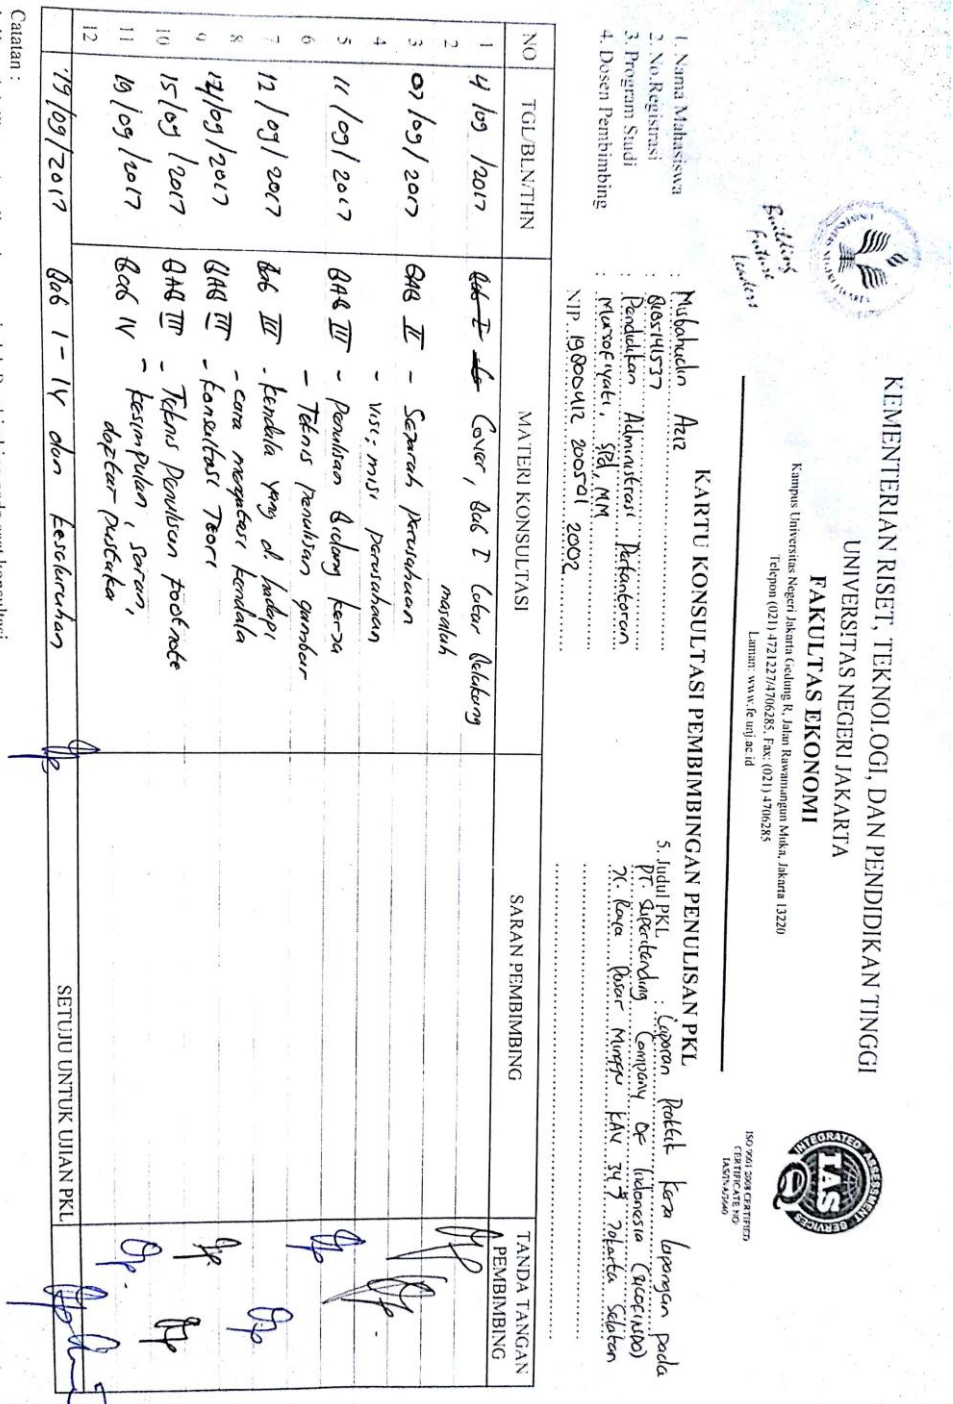 KEMENTERIAN RISET, TEKNOLOGI, DAN PENDIDIKAN TINGGI
UNIVERSITAS NEGERI JAKARTA
FAKULTAS EKONOMI
Kampus Universitas Negeri Jakarta Gedung R, Jalan Rawamangun Muka, Jakarta 13220
Telepon (021) 4721227/4706285, Fax: (021) 4706285
Laman: www.fe.unj.ac.id
Building
Future
Leaders
INTEGRATED ASSESSMENT SERVICES
IAS
ISO 9001:2008 CERTIFIED
CERTIFICATE NO:
KARTU KONSULTASI PEMBIMBINGAN PENULISAN PKL
1. Nama Mahasiswa : Misbahudin Aziz
2. No.Registrasi : 8105141537
3. Program Studi : Pendidikan Administrasi Perkantoran
4. Dosen Pembimbing : Marsofiyati, SPd, MM
NIP. 19800412 200501 2002
5. Judul PKL : Laporan Praktik Kerja Lapangan pada
PT. Superitending Company Of Indonesia (SUCOFINDO)
Jl. Raya Pasar Minggu KAV 34, Jakarta Selatan
NO TGL/BLN/THN MATERI KONSULTASI SARAN PEMBIMBING TANDA TANGAN PEMBIMBING
1 4/09/2017 Cover, Bab I Latar Belakang
2 masalah
3 07/09/2017 BAB II - Sejarah perusahaan
4 - Visi, misi perusahaan
5 11/09/2017 BAB III - Penulisan Bidang kerja
6 - Teknis penulisan gambar
7 12/09/2017 Bab III - kendala yang di hadapi
8 - cara mengatasi kendala
9 14/09/2017 BAB III - konsultasi Teori
10 15/09/2017 BAB III - Teknis Penulisan footnote
11 19/09/2017 Bab IV - kesimpulan, saran,
12 daftar pustaka
19/09/2017 Bab I - IV dan keseluruhan SETUJU UNTUK UJIAN PKL
Catatan :